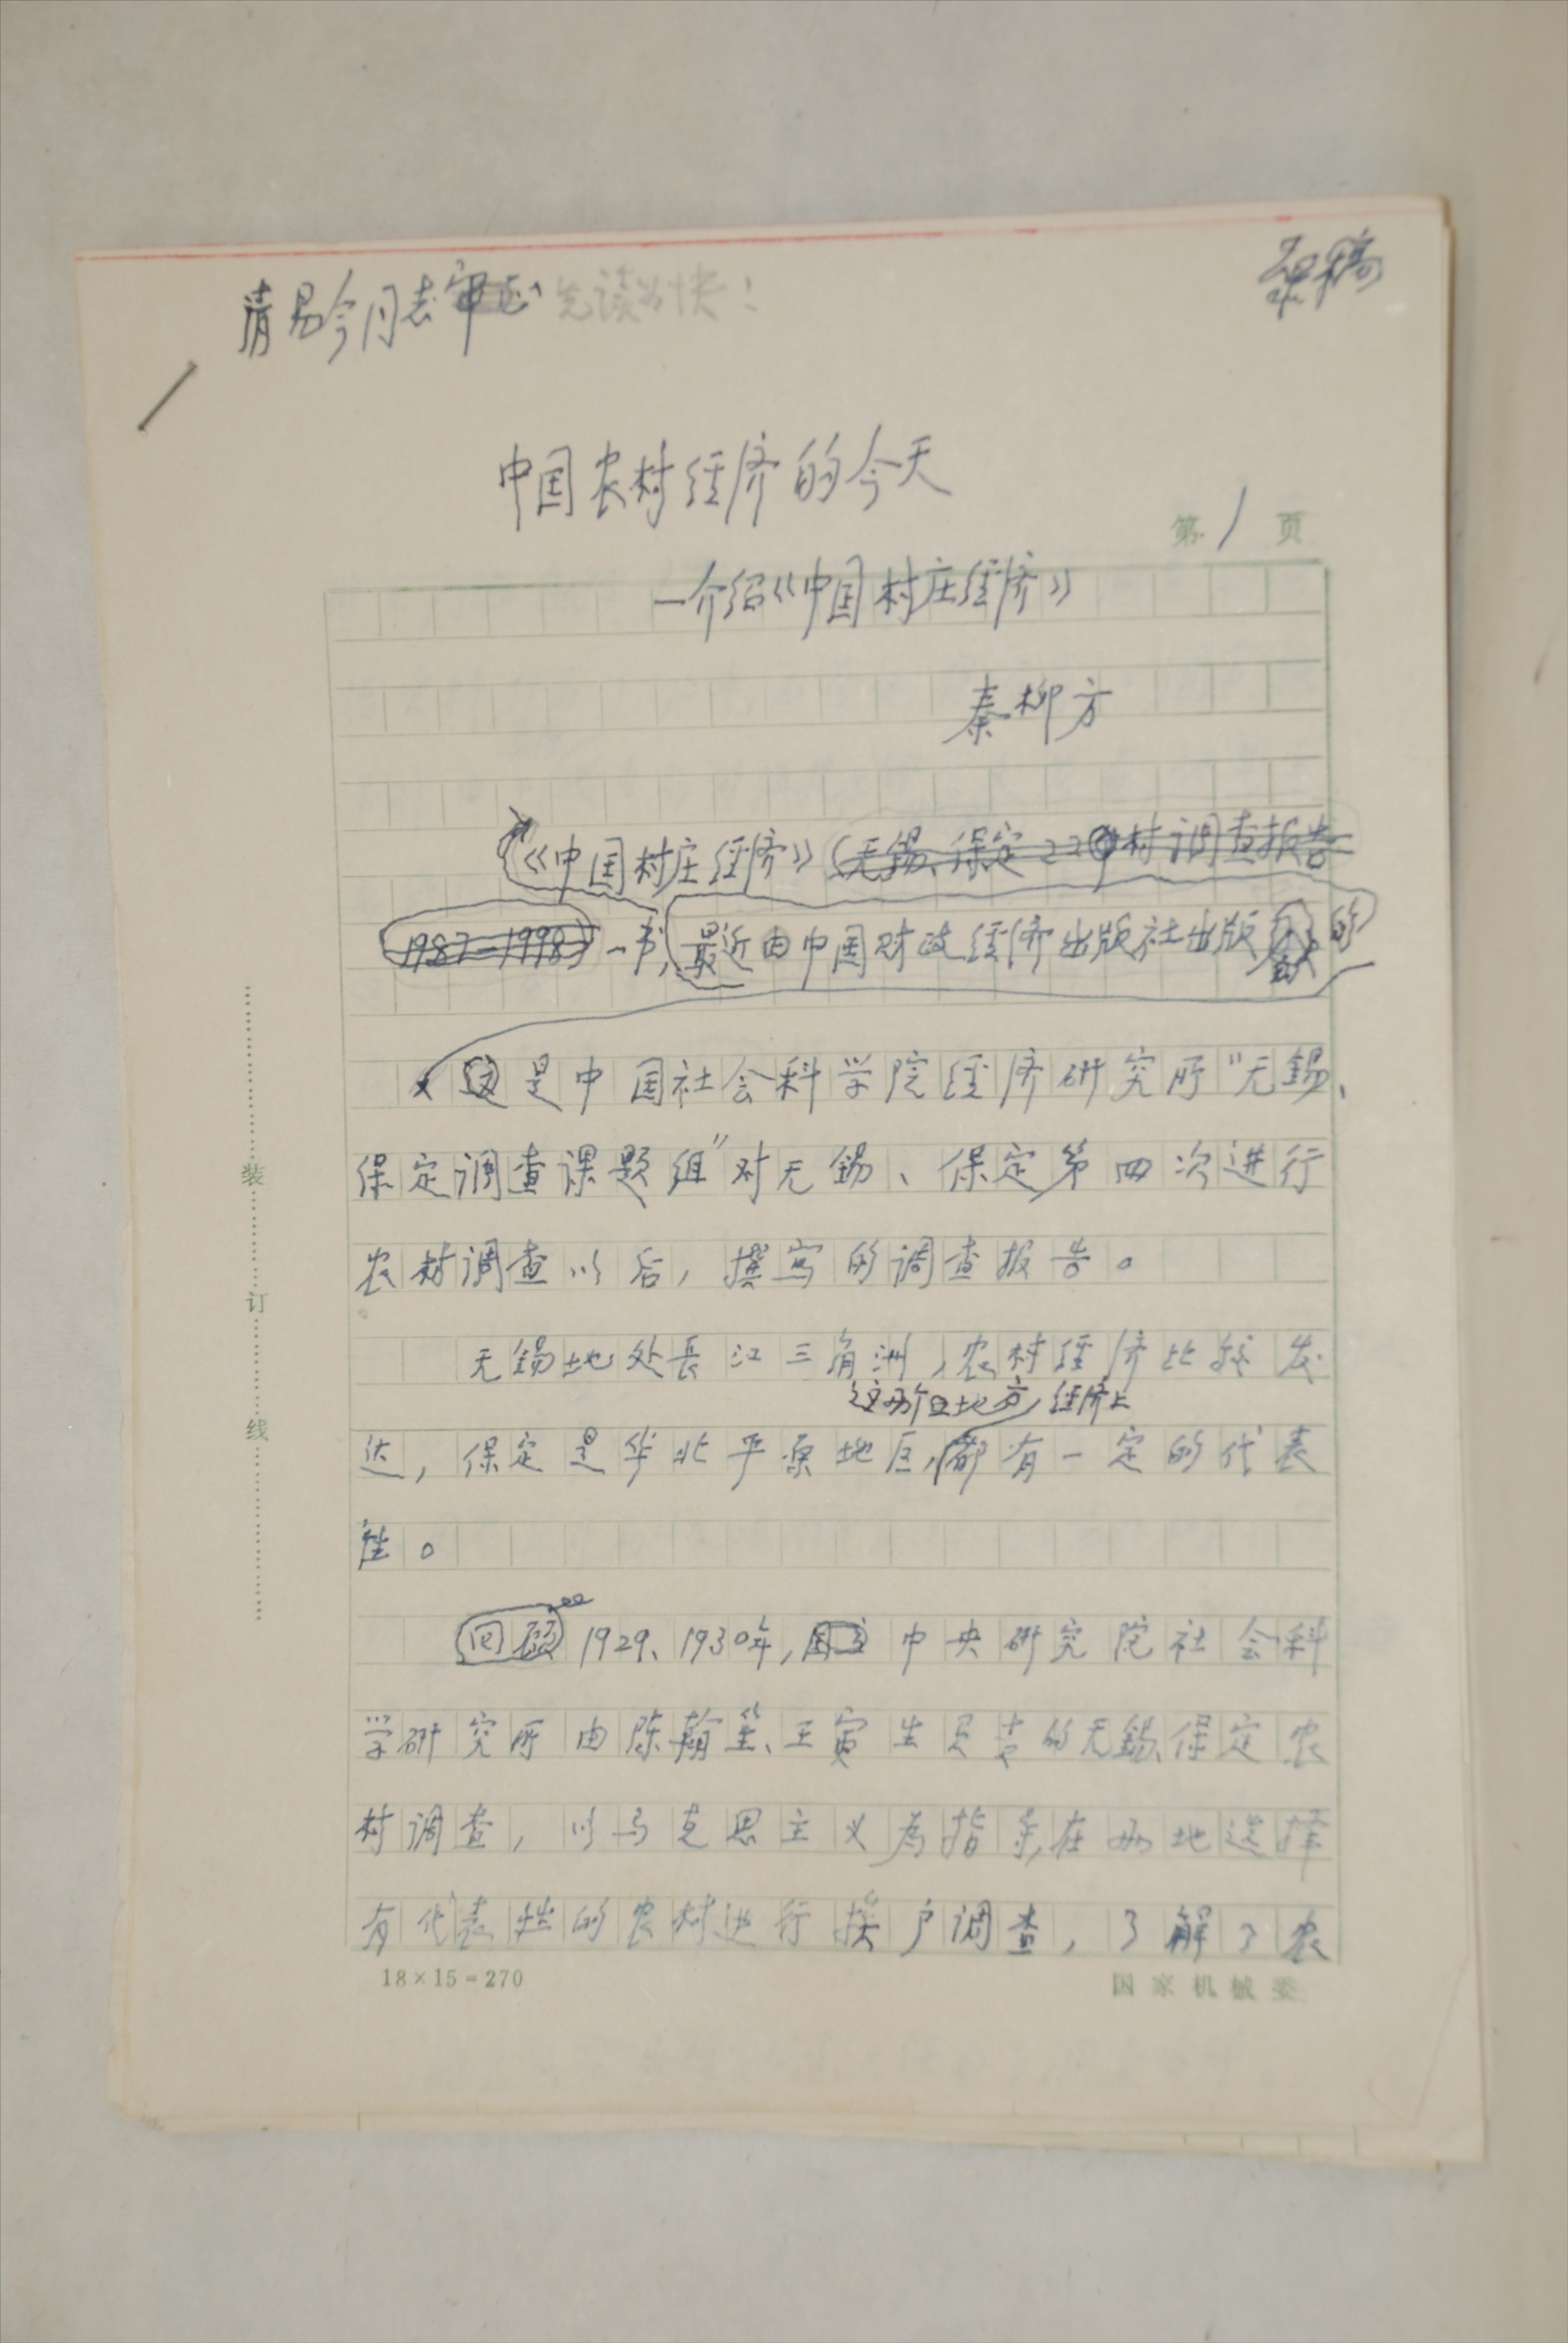 请易今同志审正 先读为快！
草稿
中国农村经济的今天
第1页
—介绍《中国村庄经济》
秦柳方
《中国村庄经济》（无锡、保定22个村调查报告
1987—1998）一书，最近由中国财政经济出版社出版的
这是中国社会科学院经济研究所“无锡、
保定调查课题组”对无锡、保定第四次进行
农村调查以后，撰写的调查报告。
无锡地处长江三角洲，农村经济比较发
这两个地方，经济上
达，保定是华北平原地区，都有一定的代表
性。
回顾1929、1930年，国立中央研究院社会科
学研究所由陈翰笙、王寅生负责的无锡、保定农
村调查，以马克思主义为指导，在两地选择
有代表性的农村进行挨户调查，了解了农
装
订
线
18×15=270
国家机械委